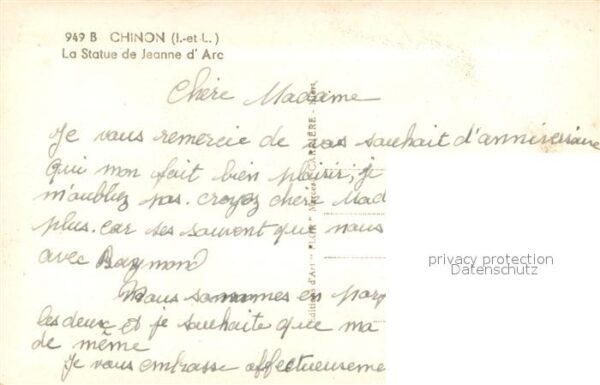 949 B CHINON (I.-et L.)
La Statue de Jeanne d'Arc
Chère Madame
Je vous remercie de vos souhait d'anniversaire
qui mon fait bien plaisir, je
m'oubliez pas. croyez chère Mad
plus. car ses souvent que nous
avec Raymond
Nous sommes en par
les deux et je souhaite que ma
de même
Je vous embrasse affectueuseme
Editions d'Art "FLOR" CARRIÈRE
privacy protection
Datenschutz